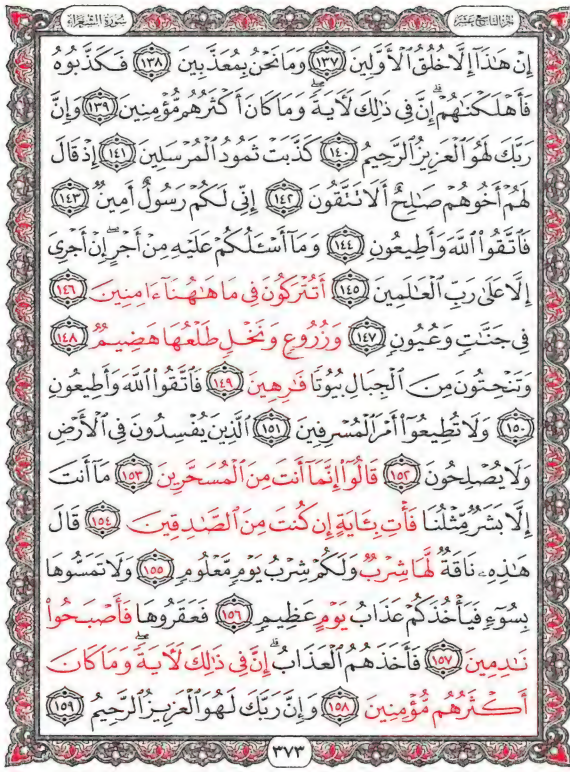 الجزء التاسع عشر
سورة الشعراء
إِنْ هَٰذَآ إِلَّا خُلُقُ ٱلْأَوَّلِينَ ١٣٧ وَمَا نَحْنُ بِمُعَذَّبِينَ ١٣٨ فَكَذَّبُوهُ
فَأَهْلَكْنَٰهُمْ ۗ إِنَّ فِى ذَٰلِكَ لَءَايَةً ۖ وَمَا كَانَ أَكْثَرُهُم مُّؤْمِنِينَ ١٣٩ وَإِنَّ
رَبَّكَ لَهُوَ ٱلْعَزِيزُ ٱلرَّحِيمُ ١٤٠ كَذَّبَتْ ثَمُودُ ٱلْمُرْسَلِينَ ١٤١ إِذْ قَالَ
لَهُمْ أَخُوهُمْ صَٰلِحٌ أَلَا تَتَّقُونَ ١٤٢ إِنِّى لَكُمْ رَسُولٌ أَمِينٌ ١٤٣
فَٱتَّقُوا۟ ٱللَّهَ وَأَطِيعُونِ ١٤٤ وَمَآ أَسْـَٔلُكُمْ عَلَيْهِ مِنْ أَجْرٍ ۖ إِنْ أَجْرِىَ
إِلَّا عَلَىٰ رَبِّ ٱلْعَٰلَمِينَ ١٤٥ أَتُتْرَكُونَ فِى مَا هَٰهُنَآ ءَامِنِينَ ١٤٦
فِى جَنَّٰتٍ وَعُيُونٍ ١٤٧ وَزُرُوعٍ وَنَخْلٍ طَلْعُهَا هَضِيمٌ ١٤٨
وَتَنْحِتُونَ مِنَ ٱلْجِبَالِ بُيُوتًا فَٰرِهِينَ ١٤٩ فَٱتَّقُوا۟ ٱللَّهَ وَأَطِيعُونِ
١٥٠ وَلَا تُطِيعُوٓا۟ أَمْرَ ٱلْمُسْرِفِينَ ١٥١ ٱلَّذِينَ يُفْسِدُونَ فِى ٱلْأَرْضِ
وَلَا يُصْلِحُونَ ١٥٢ قَالُوٓا۟ إِنَّمَآ أَنتَ مِنَ ٱلْمُسَحَّرِينَ ١٥٣ مَآ أَنتَ
إِلَّا بَشَرٌ مِّثْلُنَا فَأْتِ بِـَٔايَةٍ إِن كُنتَ مِنَ ٱلصَّٰدِقِينَ ١٥٤ قَالَ
هَٰذِهِۦ نَاقَةٌ لَّهَا شِرْبٌ وَلَكُمْ شِرْبُ يَوْمٍ مَّعْلُومٍ ١٥٥ وَلَا تَمَسُّوهَا
بِسُوٓءٍ فَيَأْخُذَكُمْ عَذَابُ يَوْمٍ عَظِيمٍ ١٥٦ فَعَقَرُوهَا فَأَصْبَحُوا۟
نَٰدِمِينَ ١٥٧ فَأَخَذَهُمُ ٱلْعَذَابُ ۗ إِنَّ فِى ذَٰلِكَ لَءَايَةً ۖ وَمَا كَانَ
أَكْثَرُهُم مُّؤْمِنِينَ ١٥٨ وَإِنَّ رَبَّكَ لَهُوَ ٱلْعَزِيزُ ٱلرَّحِيمُ ١٥٩
٣٧٣